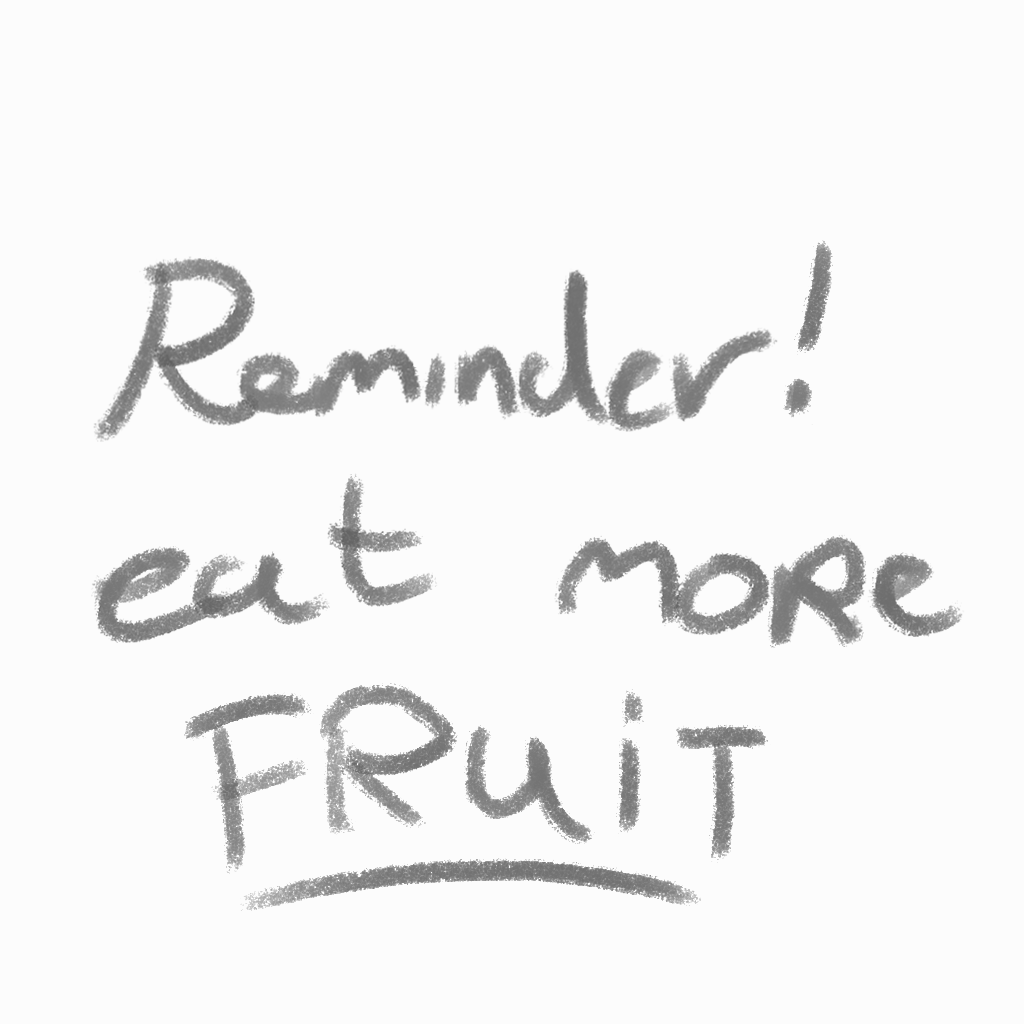 Reminder!
eat moRe
FRuiT